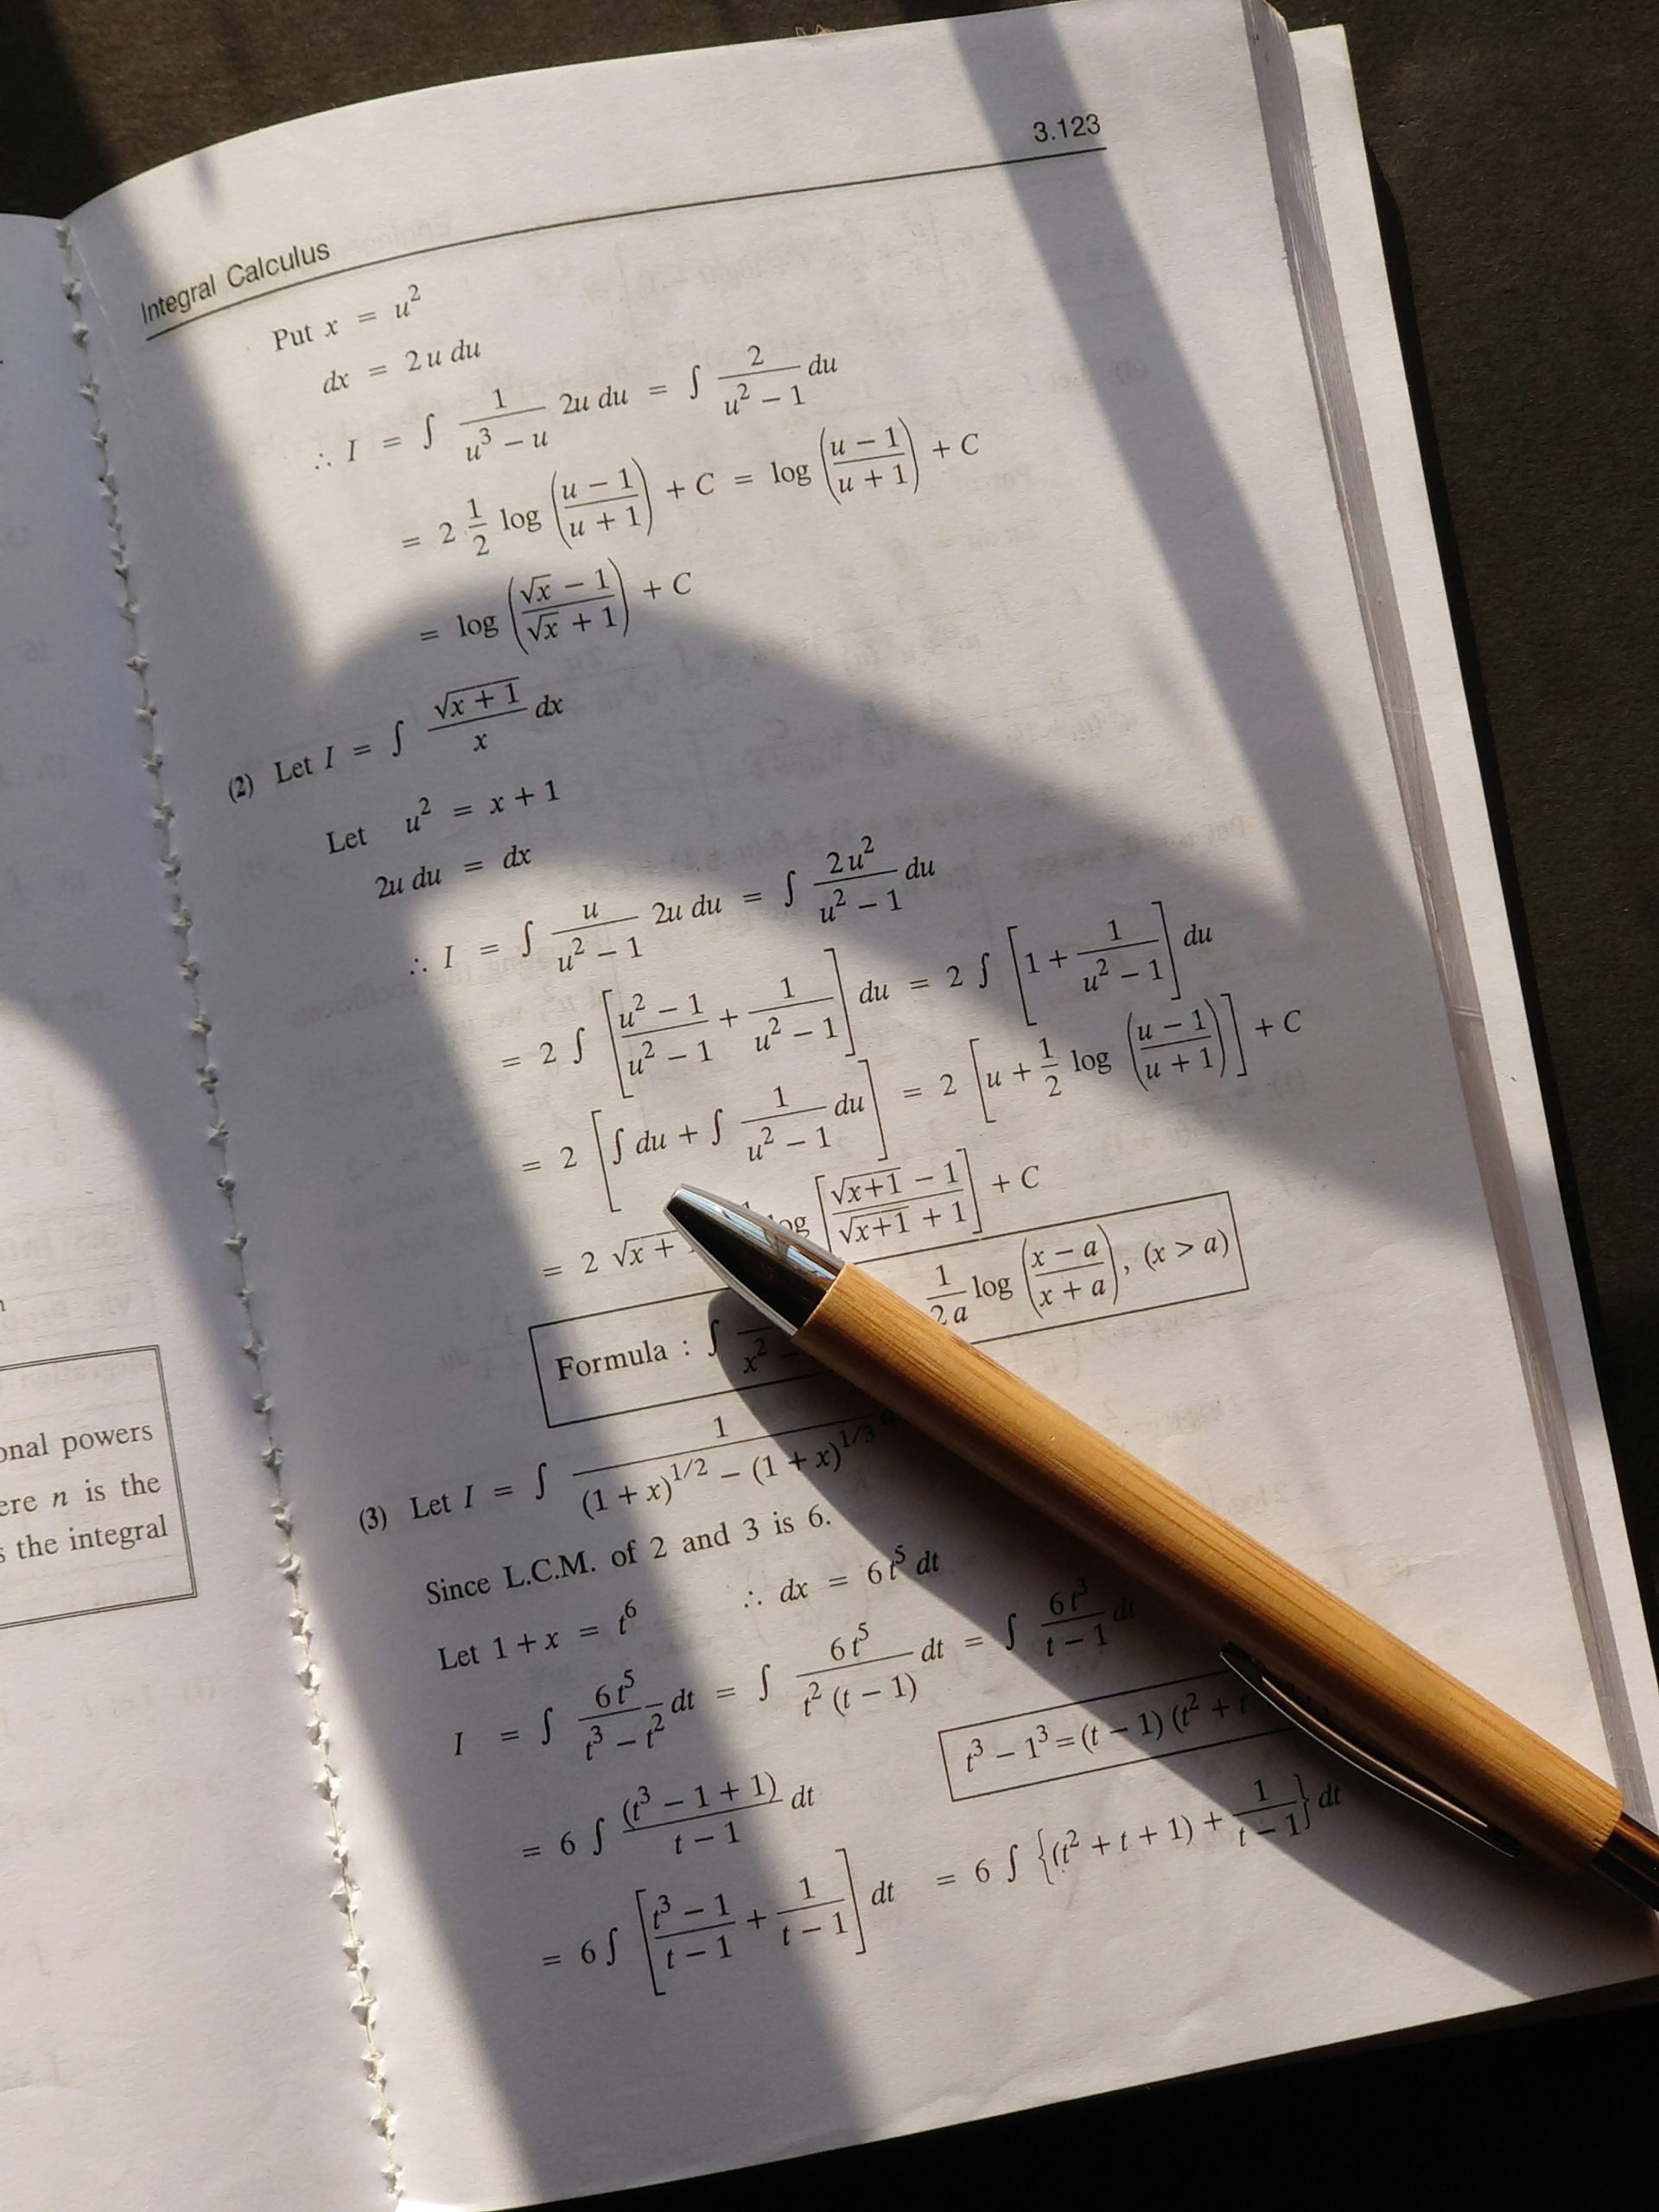 3.123
Integral Calculus
Put x = u²
dx = 2 u du
∴ I = ∫ 1/(u³ − u) 2u du = ∫ 2/(u² − 1) du
= 2 · 1/2 log ((u − 1)/(u + 1)) + C = log ((u − 1)/(u + 1)) + C
= log ((√x − 1)/(√x + 1)) + C
(2) Let I = ∫ √(x + 1)/x dx
Let u² = x + 1
2u du = dx
∴ I = ∫ u/(u² − 1) 2u du = ∫ 2 u²/(u² − 1) du
= 2 ∫ [(u² − 1)/(u² − 1) + 1/(u² − 1)] du = 2 ∫ [1 + 1/(u² − 1)] du
= 2 [∫ du + ∫ 1/(u² − 1) du] = 2 [u + 1/2 log ((u − 1)/(u + 1))] + C
= 2 √x + log [(√(x+1) − 1)/(√(x+1) + 1)] + C
Formula : ∫ x² − 1/(2 a) log ((x − a)/(x + a)), (x > a)
(3) Let I = ∫ 1/((1 + x)^1/2 − (1 + x)^1/3)
Since L.C.M. of 2 and 3 is 6.
Let 1 + x = t⁶ ∴ dx = 6 t⁵ dt
I = ∫ 6 t⁵/(t³ − t²) dt = ∫ 6 t⁵/(t² (t − 1)) dt = ∫ 6 t³/(t − 1) dt
t³ − 1³ = (t − 1) (t² + t
= 6 ∫ (t³ − 1 + 1)/(t − 1) dt
= 6 ∫ [(t³ − 1)/(t − 1) + 1/(t − 1)] dt = 6 ∫ {(t² + t + 1) + 1/(t − 1)} dt
onal powers
ere n is the
s the integral